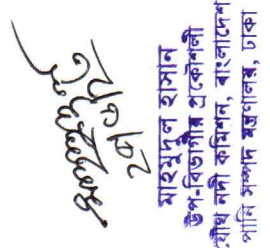 মাহমুদুল হাসান
উপ-বিভাগীয় প্রকৌশলী
যৌথ নদী কমিশন, বাংলাদেশ
পানি সম্পদ মন্ত্রণালয়, ঢাকা